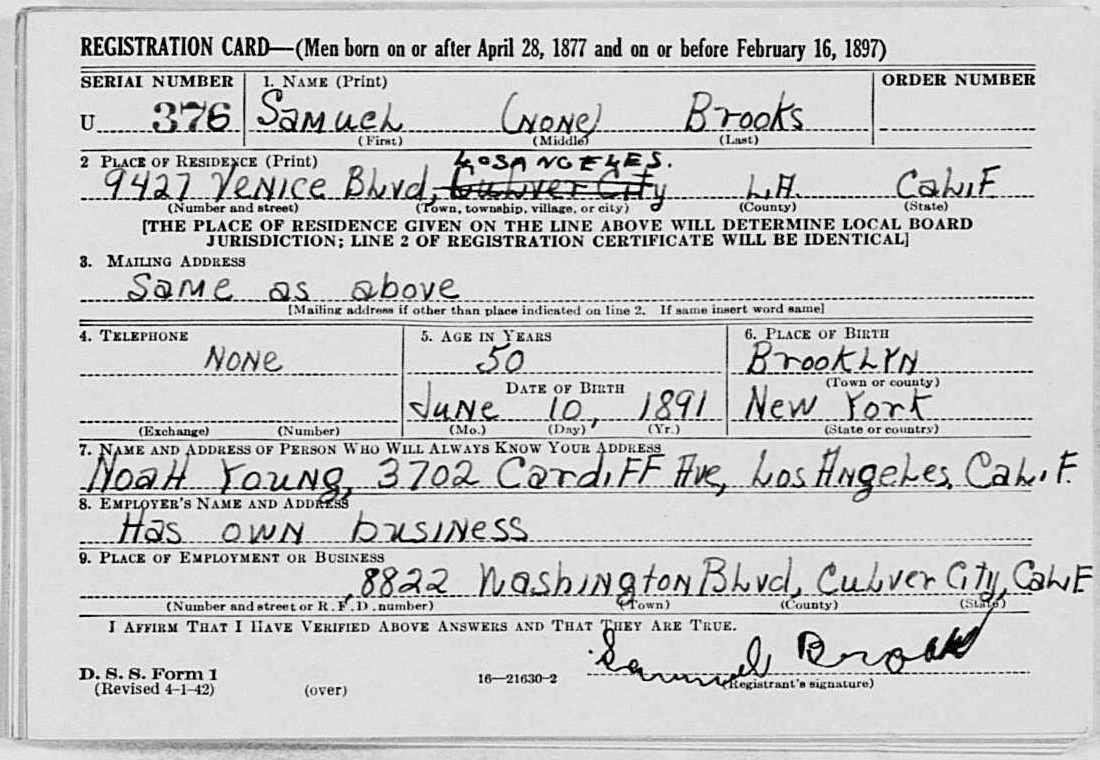 REGISTRATION CARD—(Men born on or after April 28, 1877 and on or before February 16, 1897)
SERIAL NUMBER 1. NAME (Print) ORDER NUMBER
U 376 Samuel (None) Brooks
(First) (Middle) (Last)
2 PLACE OF RESIDENCE (Print) LOS ANGELES.
9427 Venice Blvd, Culver City L.A. Calif
(Number and street) (Town, township, village, or city) (County) (State)
[THE PLACE OF RESIDENCE GIVEN ON THE LINE ABOVE WILL DETERMINE LOCAL BOARD
JURISDICTION; LINE 2 OF REGISTRATION CERTIFICATE WILL BE IDENTICAL]
3. MAILING ADDRESS
Same as above
[Mailing address if other than place indicated on line 2. If same insert word same]
4. TELEPHONE 5. AGE IN YEARS 6. PLACE OF BIRTH
None 50 Brooklyn
DATE OF BIRTH (Town or county)
June 10, 1891 New York
(Exchange) (Number) (Mo.) (Day) (Yr.) (State or country)
7. NAME AND ADDRESS OF PERSON WHO WILL ALWAYS KNOW YOUR ADDRESS
Noah Young, 3702 Cardiff Ave, Los Angeles, Calif.
8. EMPLOYER'S NAME AND ADDRESS
Has own business
9. PLACE OF EMPLOYMENT OR BUSINESS
8822 Washington Blvd, Culver City, Calif
(Number and street or R. F. D. number) (Town) (County) (State)
I AFFIRM THAT I HAVE VERIFIED ABOVE ANSWERS AND THAT THEY ARE TRUE.
Samuel Brooks
D. S. S. Form 1
(Revised 4-1-42) (over) 16—21630-2 (Registrant's signature)